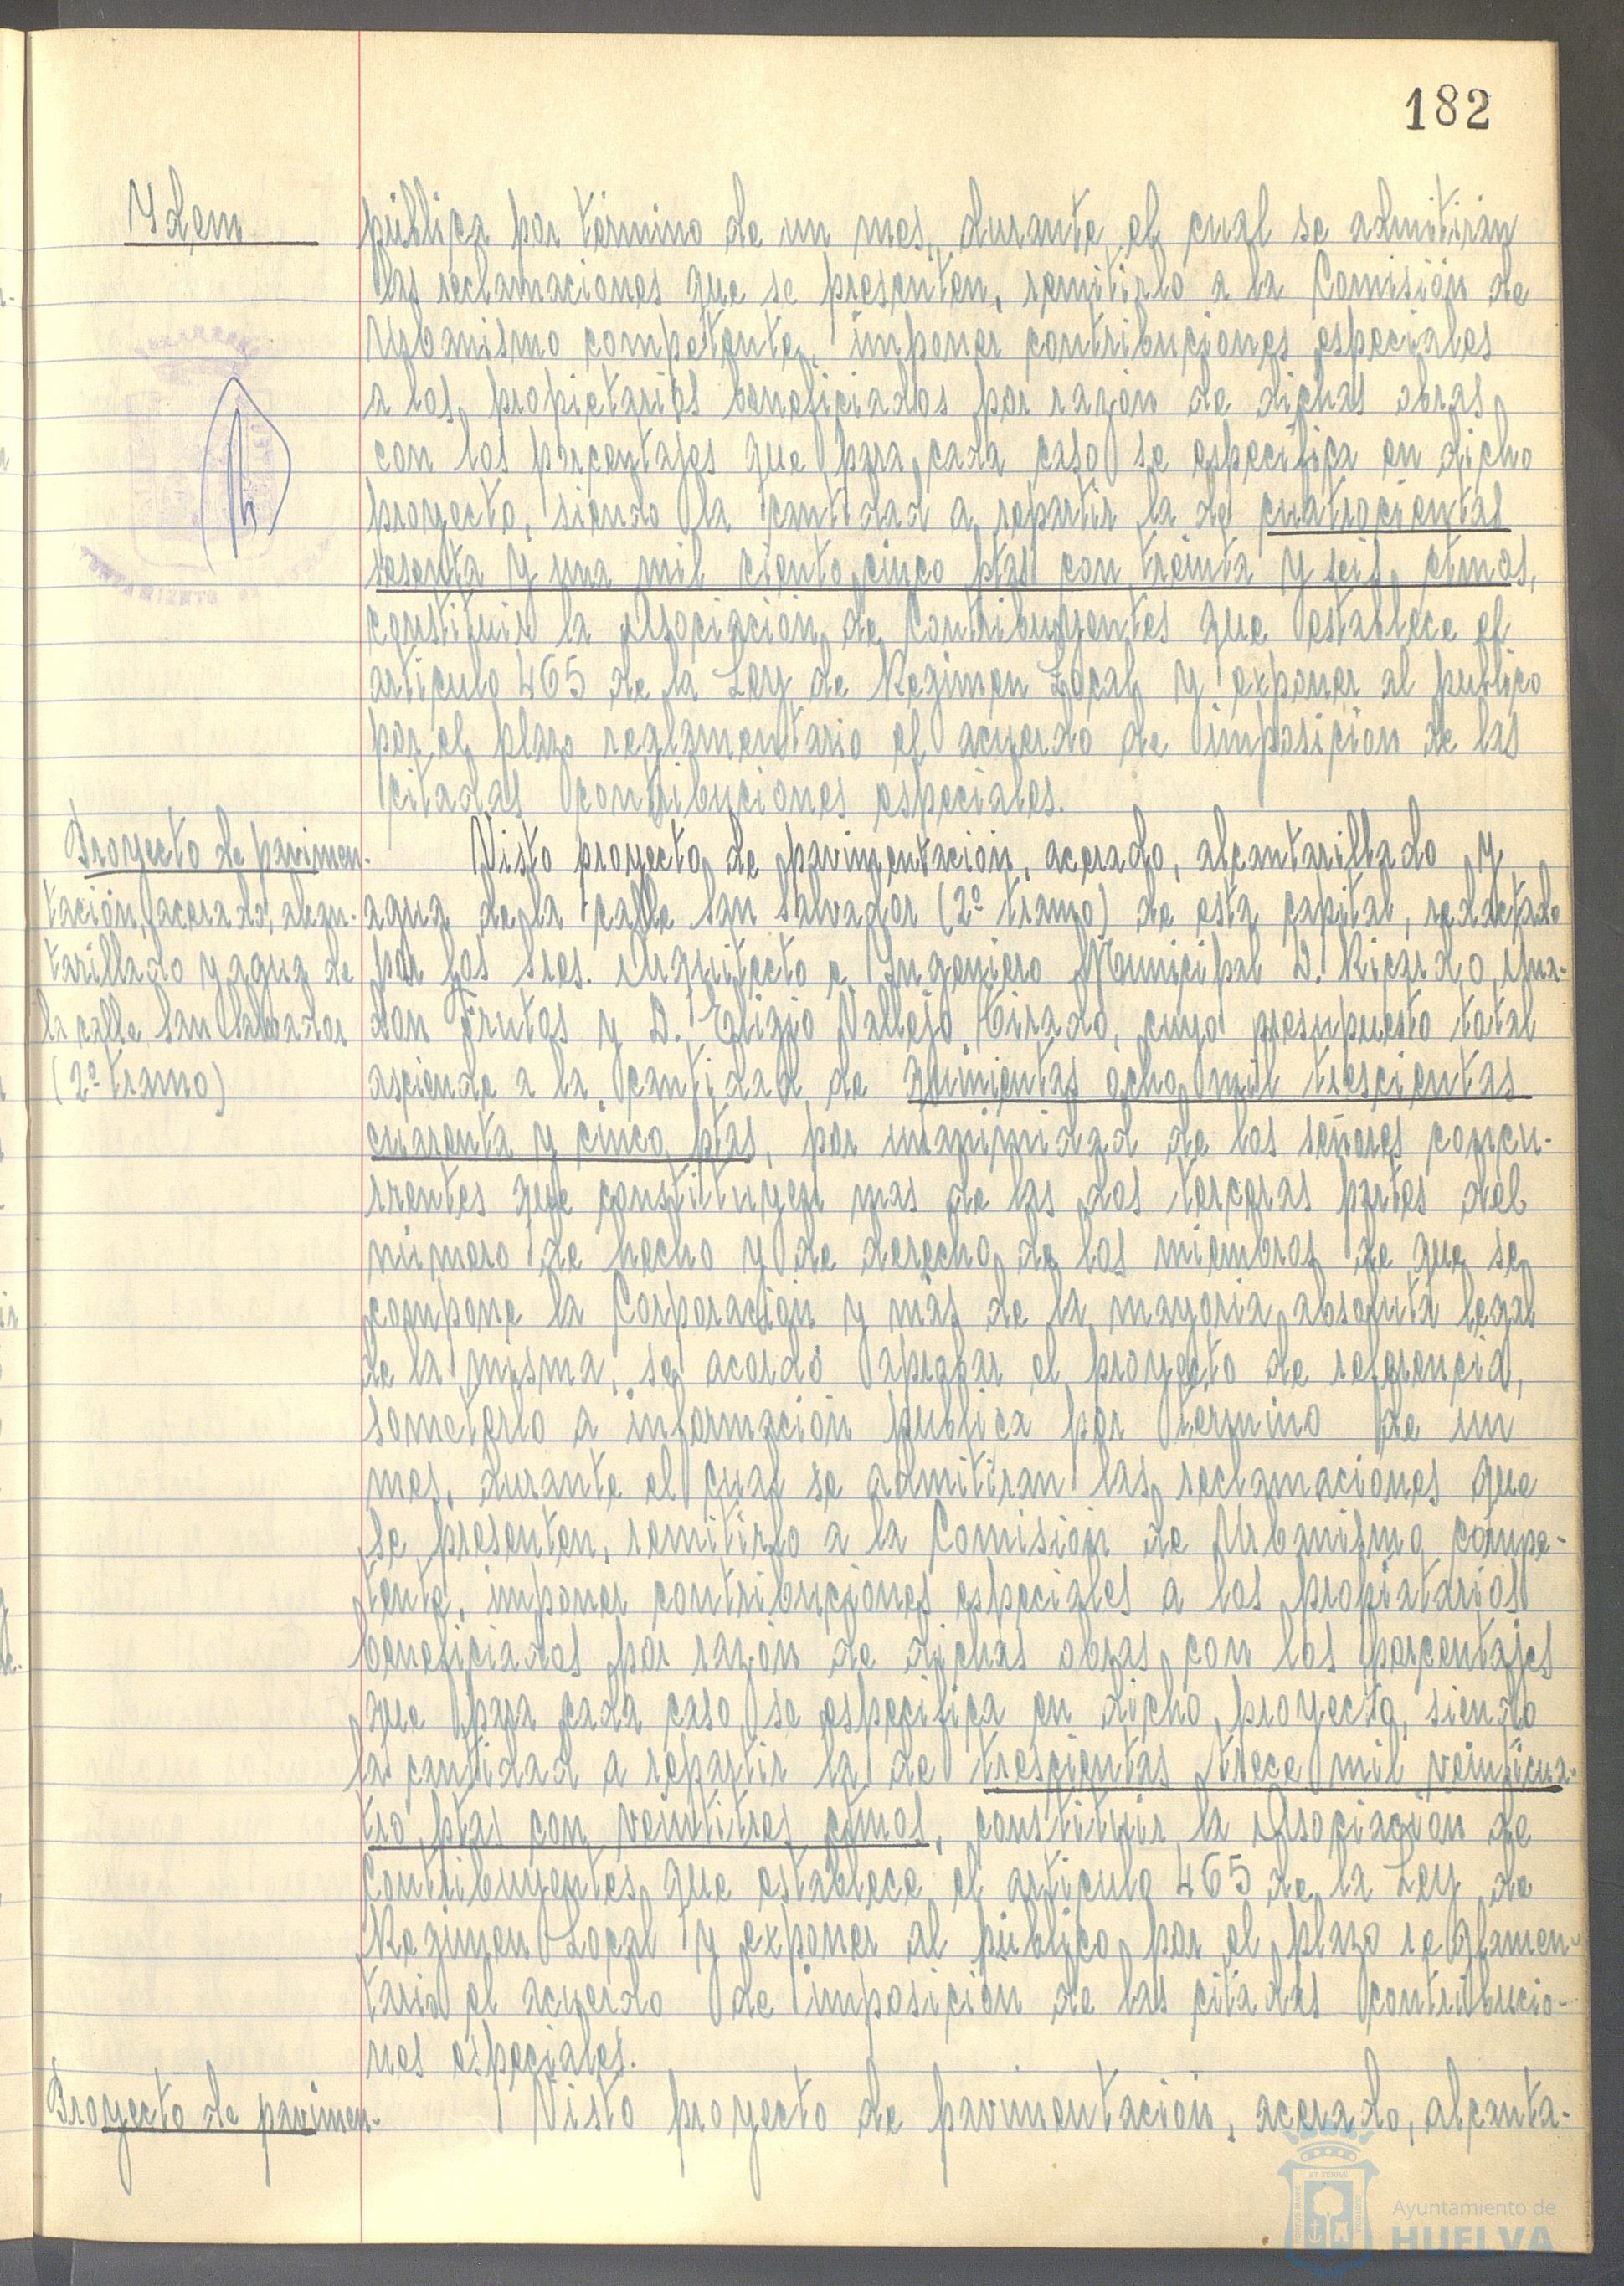 182
Ydem
pública por término de un mes, durante el cual se admitirán
las reclamaciones que se presenten, remitirlo a la Comisión de
Urbanismo competente, imponer contribuciones especiales
a los propietarios beneficiados por razón de dichas obras
con los porcentajes que para cada caso se especifica en dicho
proyecto, siendo la cantidad a repartir la de cuatrocientas
sesenta y una mil ciento cinco ptas con treinta y seis ctmos,
constituir la Asociación de Contribuyentes que establece el
artículo 465 de la Ley de Regimen Local y exponer al publico
por el plazo reglamentario el acuerdo de imposición de las
citadas contribuciones especiales.
Proyecto de pavimen-
tación, acerado, alcan-
tarillado y agua de
la calle San Salvador
(2º tramo)
Visto proyecto de pavimentación, acerado, alcantarillado y
agua de la calle San Salvador (2º tramo) de esta capital, redactado
por los Sres. Arquitecto e Yngeniero Municipal D. Ricardo Ana-
don Frutos y D. Eligio Vallejo Tirado, cuyo presupuesto total
asciende a la cantidad de quinientas ocho mil trescientas
cuarenta y cinco ptas, por unanimidad de los señores concu-
rrentes que constituyen mas de las dos terceras partes del
número de hecho y de derecho de los miembros de que se
compone la Corporación y más de la mayoria absoluta legal
de la misma, se acordó aprobar el proyecto de referencia,
someterlo a información publica por termino de un
mes, durante el cual se admitiran las reclamaciones que
se presenten, remitirlo a la Comisión de Urbanismo compe-
tente, imponer contribuciones especiales a los propiatarios
beneficiados por razón de dichas obras con los porcentajes
que para cada caso se especifica en dicho proyecto, siendo
la cantidad a repartir la de trescientas trece mil veinticua-
tro ptas con veintitres ctmos, constituir la Asociación de
Contribuyentes que establece el articulo 465 de la Ley de
Regimen Local y exponer al público por el plazo reglamen-
tario el acuerdo de imposición de las citadas contribucio-
nes especiales.
Proyecto de pavimen-
Visto proyecto de pavimentación, acerado, alcanta-
Ayuntamiento de
HUELVA